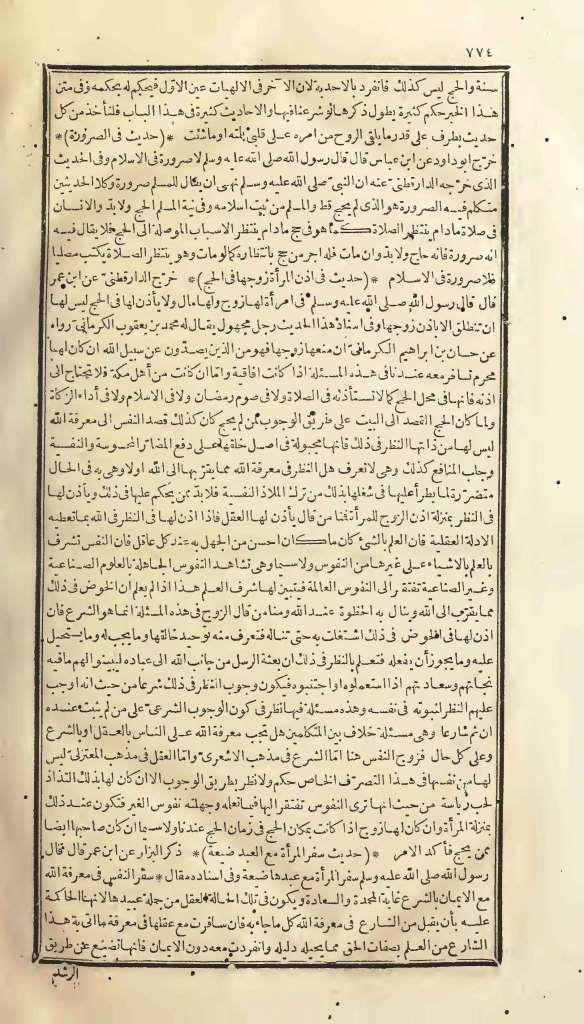 ٧٧٤
سنة والحج ليس كذلك فانفرد بالاحدية لان الآخر في الالهيات عين الاول فيحكم له بحكمه وفي متن
هذا الخبر حكم كثيرة يطول ذكرها لو شرعنا فيها والاحاديث كثيرة في هذا الباب فلنأخذ من كل
حديث بطرف على قدر ما يلقى الروح من امره على قلبي بلمته اوما شئت *(حديث في الصرورة)*
خرّج ابو داود عن ابن عباس قال قال رسول الله صلى الله عليه وسلم لا صرورة في الاسلام وفي الحديث
الذى خرّجه الدارقطنى عنه ان النبي صلى الله عليه وسلم نهى ان يقال للمسلم صرورة وكلا الحديثين
متكلم فيه الصرورة هو الذى لم يحج قط والمسلم من ثبت اسلامه وفي نية المسلم الحج ولابدّ والانسان
في صلاة مادام ينتظر الصلاة كما هو في حج مادام ينتظر الاسباب الموصلة الى الحج فلا يقال فيه
انه صرورة فانه حاج ولابدّ وان مات فله اجر من حج بانتظاره كما لو مات وهو ينتظر الصلاة يكتب مصليا
فلا صرورة في الاسلام *(حديث في اذن المرأة زوجها في الحج)* خرّج الدارقطنى عن ابن عمر
قال قال رسول الله صلى الله عليه وسلم في امرأة لها زوج ولها مال ولا يأذن لها في الحج ليس لها
ان تنطلق الا باذن زوجها وفي اسناد هذا الحديث رجل مجهول يقال له محمد بن يعقوب الكرمانى رواه
عن حسان بن ابراهيم الكرمانى ان منعها زوجها فهو من الذين يصدّون عن سبيل الله ان كان لها
محرم تسافر معه عندنا في هذه المسئلة اذا كانت افاقية وامّا ان كانت من أهل مكة فلا تحتاج الى
اذنه فانها في محل الحج كما لا تستأذنه في الصلاة ولا في صوم رمضان ولا في الاسلام ولا في أداء الزكاة
ولما كان الحج القصد الى البيت على طريق الوجوب لمن لم يحج كان كذلك قصد النفس الى معرفة الله
ليس لها من ذاتها النظر في ذلك فانها مجبولة في اصل خلقها على دفع المضارّ المحسوسة والنفسية
وجلب المنافع كذلك وهى لا تعرف هل النظر في معرفة الله مما يقرّبها الى الله اولا وهى به في الحال
متضررة لما يطرأ عليها في شغلها بذلك من ترك الملاذ النفسية فلابدّ ممن يحكم عليها في ذلك ويأذن لها
في النظر بمنزلة اذن الزوج للمرأة فمنا من قال يأذن لها العقل فاذا اذن لها في النظر في الله بما تعطيه
الادلة العقلية فان العلم بالشئ كان ما كان احسن من الجهل به عند كل عاقل فان النفس تشرف
بالعلم بالاشياء على غيرها من النفوس ولا سيما وهى تشاهد النفوس الجاهلة بالعلوم الصناعية
وغير الصناعية تفتقر الى النفوس العالمة فيتبين لها شرف العلم هذا اذا لم يعلم ان الخوض في ذلك
مما يقرّب الى الله وينال به الحظوة عند الله ومنا من قال الزوج في هذه المسئلة انما هو الشرع فان
اذن لها في الخوض في ذلك اشتغلت به حتى تناله فتعرف منه توحيد خالقها وما يجب له وما يستحيل
عليه وما يجوز أن يفعله فتعلم بالنظر في ذلك ان بعثة الرسل من جانب الله الى عباده ليبينوا لهم ما فيه
نجاتهم وسعادتهم اذا استعملوه او اجتنبوه فيكون وجوب النظر في ذلك شرعا من حيث انه اوجب
عليهم النظر لثبوته في نفسه وهذه مسئلة فيها نظر في كون الوجوب الشرعى على من لم يثبت عنده
ان ثم شارعا وهى مسئلة خلاف بين المتكلمين هل تجب معرفة الله على الناس بالعقل او بالشرع
وعلى كل حال فزوج النفس هنا امّا الشرع في مذهب الاشعرى وامّا العقل في مذهب المعتزلى ليس
لها من نفسها في هذا التصرّف الخاص حكم ولا نظر بطريق الوجوب الا ان كان لها بذلك التذاذ
لحب رياسة من حيث انها ترى النفوس تفتقر اليها فيما تعلمه وجهلته نفوس الغير فتكون عند ذلك
بمنزلة المرأة وان كان لها زوج اذا كانت بمكان الحج في زمان الحج عندنا ولا سيما ان كان صاحبها ايضا
ممن يحج فأكد الامر *(حديث سفر المرأة مع العبد ضيعة)* ذكر البزار عن ابن عمر قال قال
رسول الله صلى الله عليه وسلم سفر المرأة مع عبدها ضيعة وفي اسناده مقال * سفر النفس في معرفة الله
مع الايمان بالشرع غاية المحمدة والسعادة ويكون في تلك الحالة العقل من جملة عبيدها لانها الحاكمة
عليه بأن يقبل من الشارع في معرفة الله كل ما جاء به فان سافرت مع عقلها في معرفة ما اتى به هذا
الشارع من العلم بصفات الحق مما يحيله دليله وانفردت معه دون الايمان فانها تضيع عن طريق
الرشد